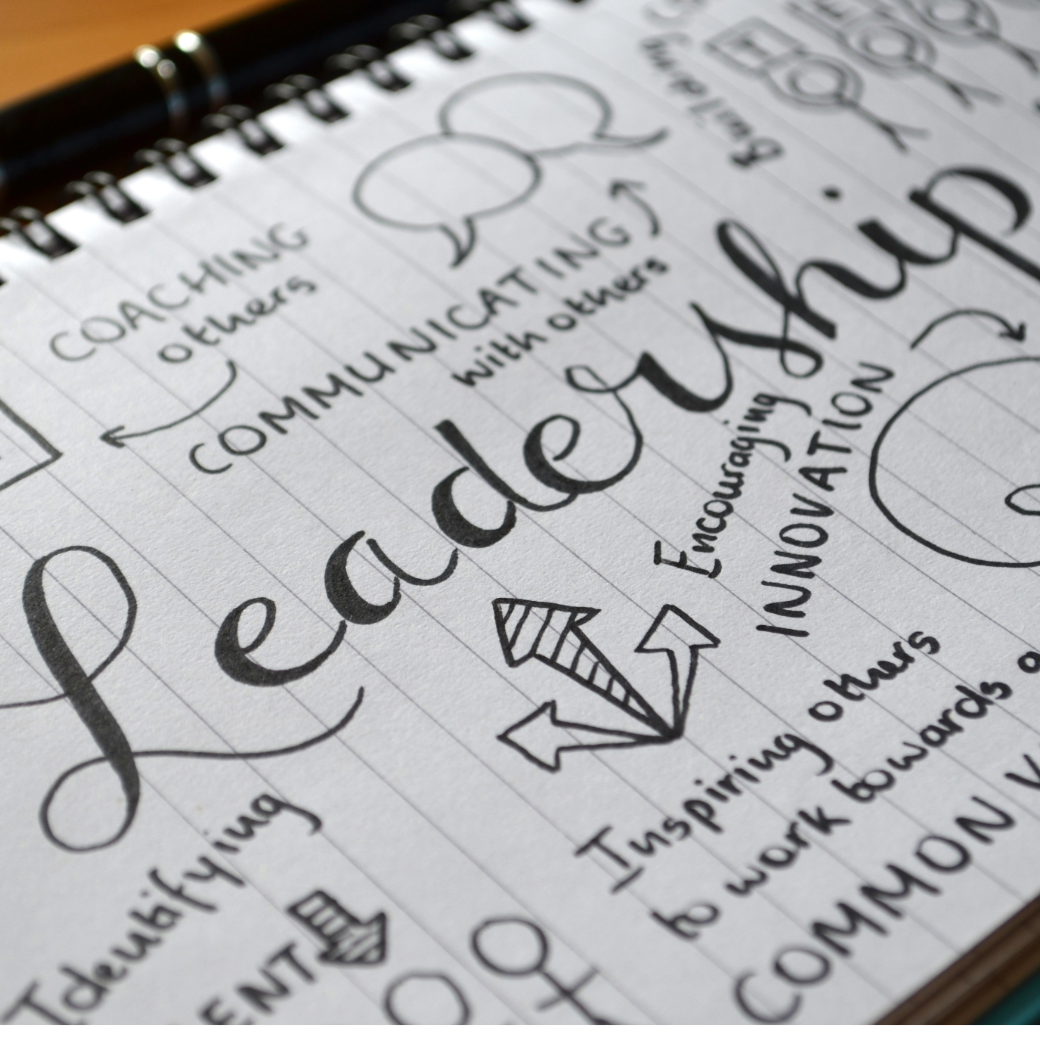 Building
COACHING
others
COMMUNICATING
with others
Leadership
Encouraging
INNOVATION
Inspiring others
to work towards a
COMMON
Identifying
ENT